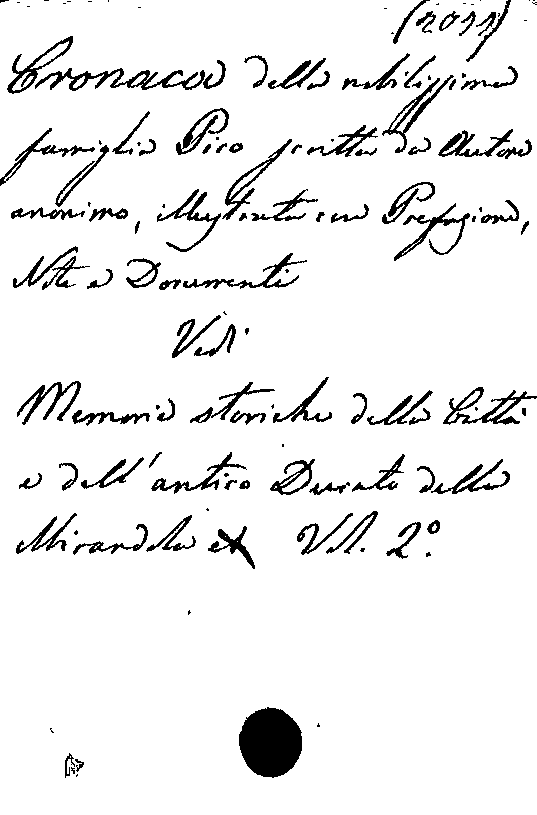 (2011)
Cronaca della nobilissima
famiglia Pico scritta da Autore
anonimo, illustrata con Prefazione,
Note e Documenti
Vedi
Memorie storiche della Città
e dell'antico Ducato della
Mirandola Vol. 2º.